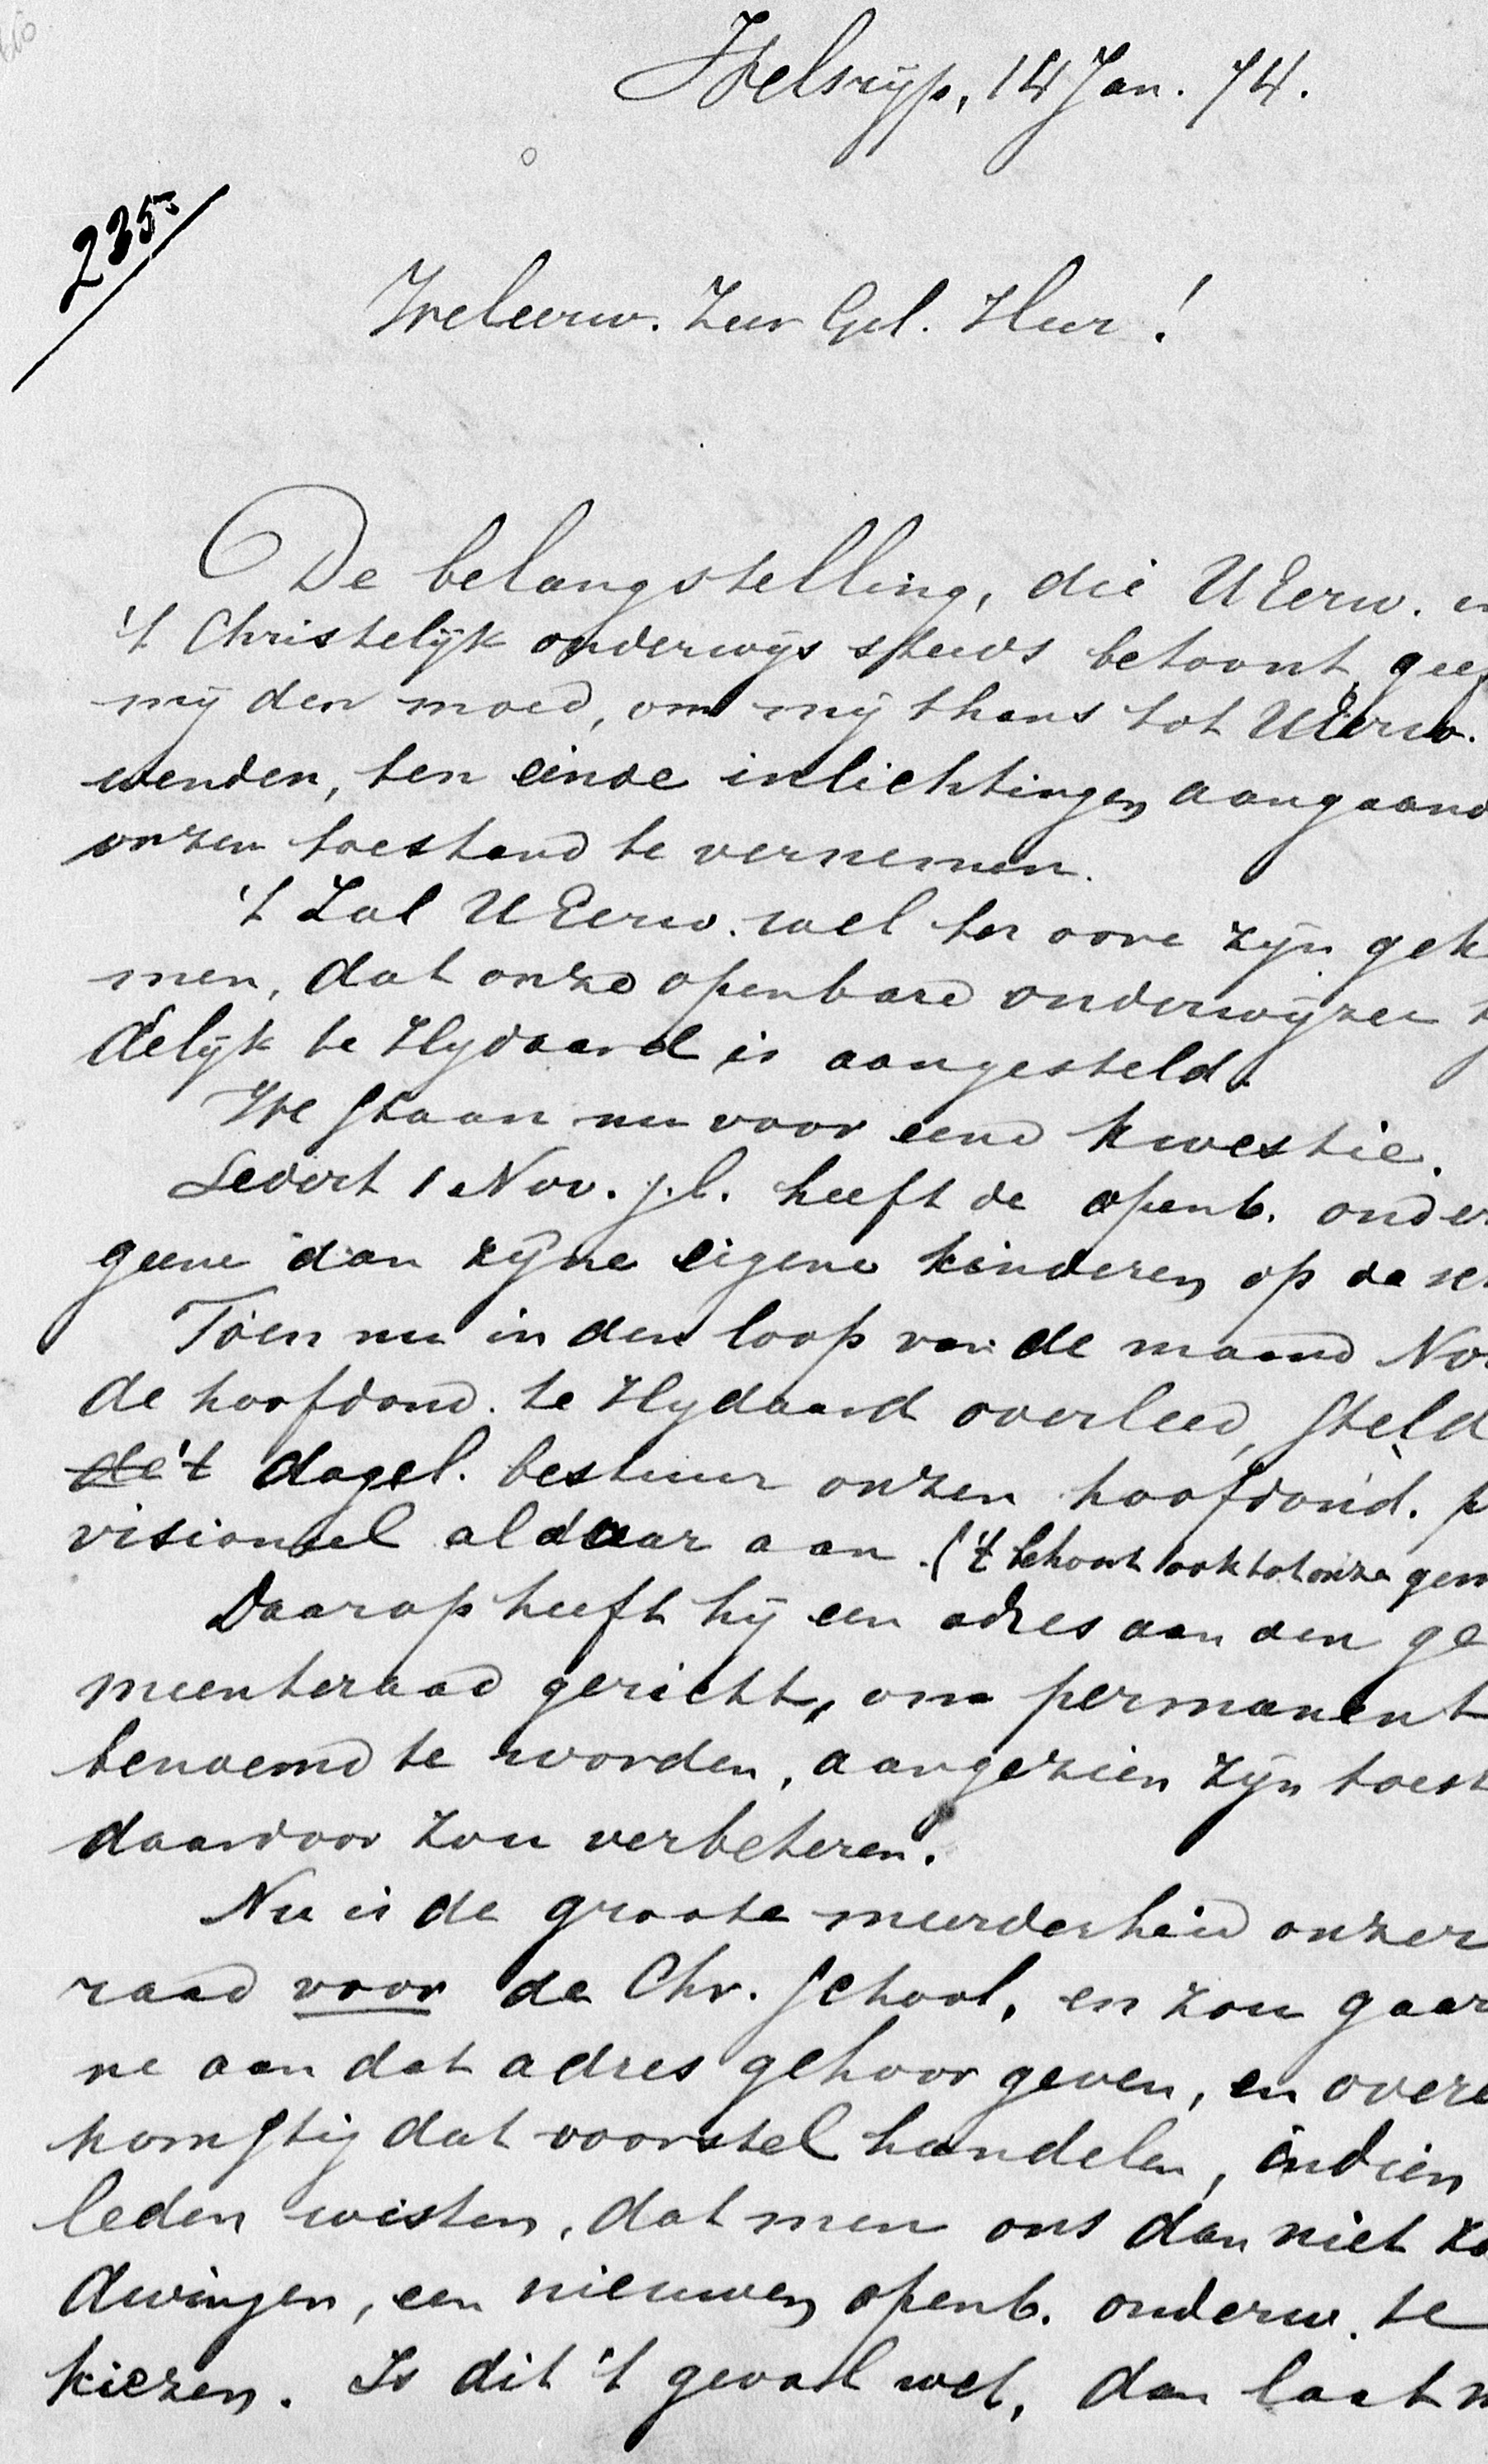 Welsryp, 14 Jan. 74.
235
Weleerw. Zeer Gel. Heer!
De belangstelling, die UEerw. in
't Christelijk onderwijs steeds betoont, geef
mij den moed, om mij thans tot UEerw.
wenden, ten einde inlichtingen aangaand
onzen toestand te vernemen.
't Zal UEerw. wel ter oore zijn geko
men, dat onze openbare onderwijzer t
delijk te Hydaard is aangesteld.
We staan nu voor eene kwestie.
Sedert 1 Nov. j.l. heeft de openb. onder
geene dan zijne eigene kinderen op de sc
Toen nu in den loop van de maand Nov
de hoofdond. te Hydaard overleed, steld
de 't dagel. bestuur onzen hoofdond. p
visioneel aldaar aan. ('t behoort ook tot onze gem
Daarop heeft hij een adres aan den ge
meenteraad gericht, om permanent
benoemd te worden, aangezien zijn toest
daardoor zou verbeteren.
Nu is de groote meerderheid onzer
raad voor de Chr. school, en zou gaar
ne aan dat adres gehoor geven, en overe
komstig dat voorstel handelen, indien
leden wisten, dat men ons dan niet zo
dwingen, een nieuwen openb. onderw. te
kiezen. Is dit 't geval wel, dan laat m